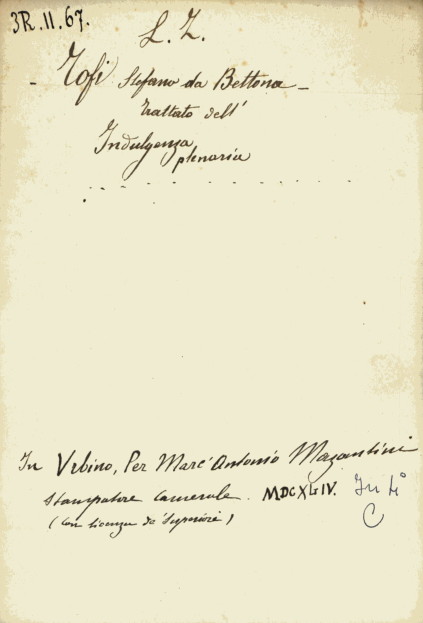 3R.II.67.
L. Z.
- Tofi Stefano da Bettona -
trattato dell'
Indulgenza
plenaria
In Vrbino, Per Marc'Antonio Mazantini
Stampatore Camerale. MDCXLIV. In 4°
(Con licenza de' Superiori)
C